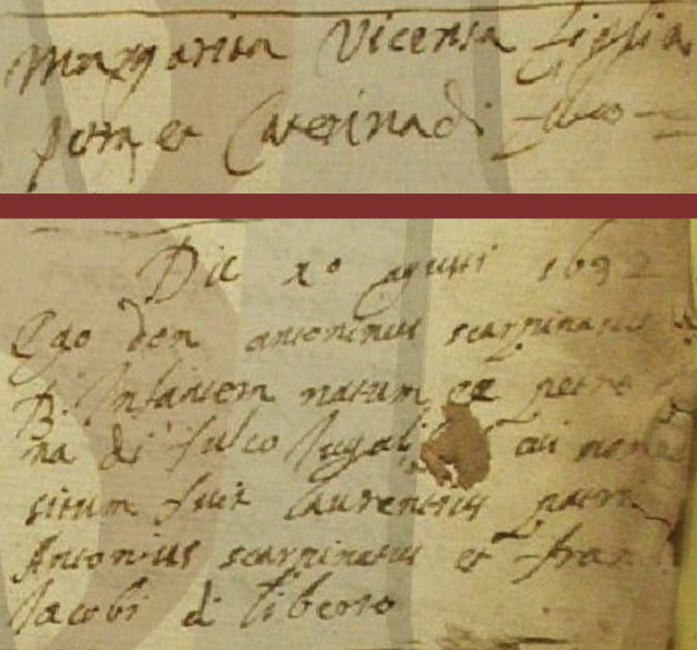 Margarita Vicensa figlia
petri et Caterina di fulco
Die xo agusti 1632
Ego don antoninus scarpinatus
B. Infantem natum ex petro
na di fulco Jugali cui nome
situm fuit Laurentius patrini
Antonius scarpinatus et fran
Jacobi di liberto